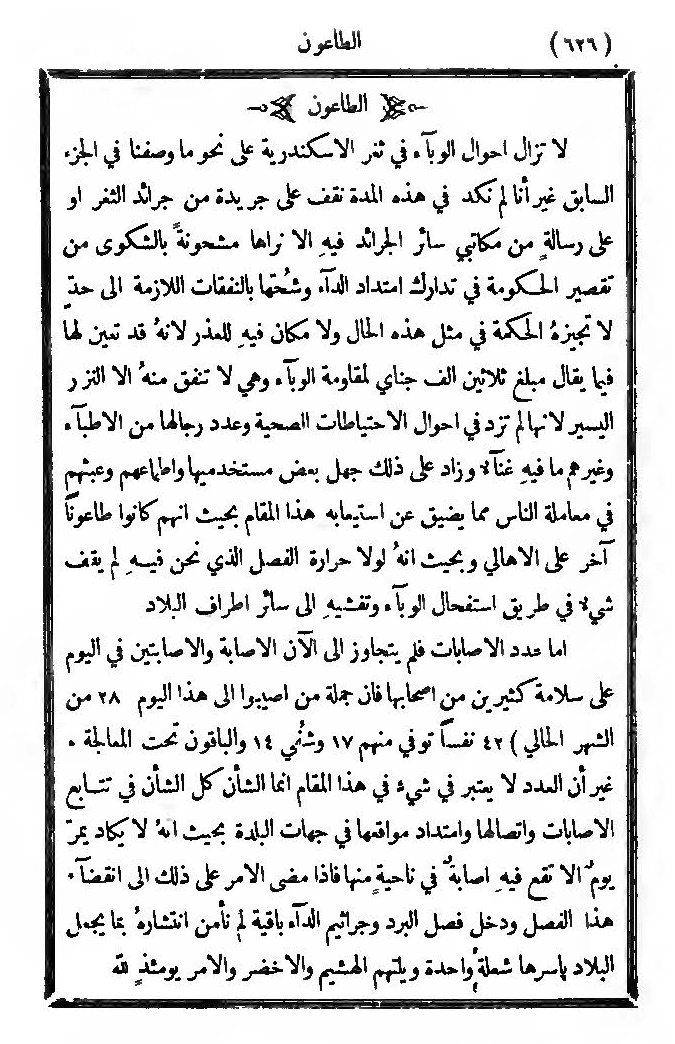 (٦٢٦) الطاعون
الطاعون
لا تزال احوال الوبآء في ثغر الاسكندرية على نحو ما وصفنا في الجزء
السابق غير أنا لم نكد في هذه المدة نقف على جريدة من جرائد الثغر او
على رسالةٍ من مكاتبي سائر الجرائد فيهِ الا نراها مشحونةً بالشكوى من
تقصير الحكومة في تدارك امتداد الدآء وشُحّها بالنفقات اللازمة الى حدّ
لا تجيزهُ الحكمة في مثل هذه الحال ولا مكان فيهِ للعذر لانهُ قد تعين لها
فيما يقال مبلغ ثلاثين الف جناي لمقاومة الوبآء وهي لا تنفق منهُ الا النزر
اليسير لانها لم تزد في احوال الاحتياطات الصحية وعدد رجالها من الاطبآء
وغيرهم ما فيهِ غنآء وزاد على ذلك جهل بعض مستخدميها واطماعهم وعبثهم
في معاملة الناس مما يضيق عن استيعابه هذا المقام بحيث انهم كانوا طاعونًا
آخر على الاهالي وبحيث انهُ لولا حرارة الفصل الذي نحن فيـهِ لم يقف
شيء في طريق استفحال الوبآء وتفشيهِ الى سائر اطراف البلاد
اما عدد الاصابات فلم يتجاوز الى الآن الاصابة والاصابتين في اليوم
على سلامة كثيرين من اصحابها فان جملة من اصيبوا الى هذا اليوم ٢٨ من
الشهر الحالي) ٤٢ نفساً توفي منهم ١٧ وشُفي ١٤ والباقون تحت المعالجة ٠
غير أن العدد لا يعتبر في شيء في هذا المقام انما الشأن كل الشأن في تتـابع
الاصابات واتصالها وامتداد مواقعها في جهات البلدة بحيث انهُ لا يكاد يمرّ
يومٌ الا تقع فيهِ اصابةٌ في ناحيةٍ منها فاذا مضى الامر على ذلك الى انقضآء
هذا الفصل ودخل فصل البرد وجراثيم الدآء باقية لم نأمن انتشارهُ بما يجعل
البلاد باسرها شعلةً واحدة ويلتهم الهشيم والاخضر والامر يومئذٍ لله